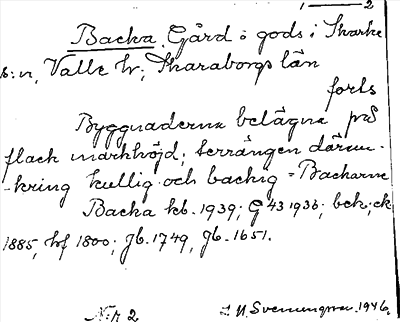 1 — 2
Backa. Gård o gods i Skarke
s:n, Valle hr; Skaraborgs län
forts
Byggnaderna belägna på
flack markhöjd; terrängen därom-
-kring kullig och backig = Backarna
Backa kb. 1939; G 43 1938; bek; ek
1885, hf 1800; jb. 1749, jb. 1651.
N:r 2 Svenungsson 1946.